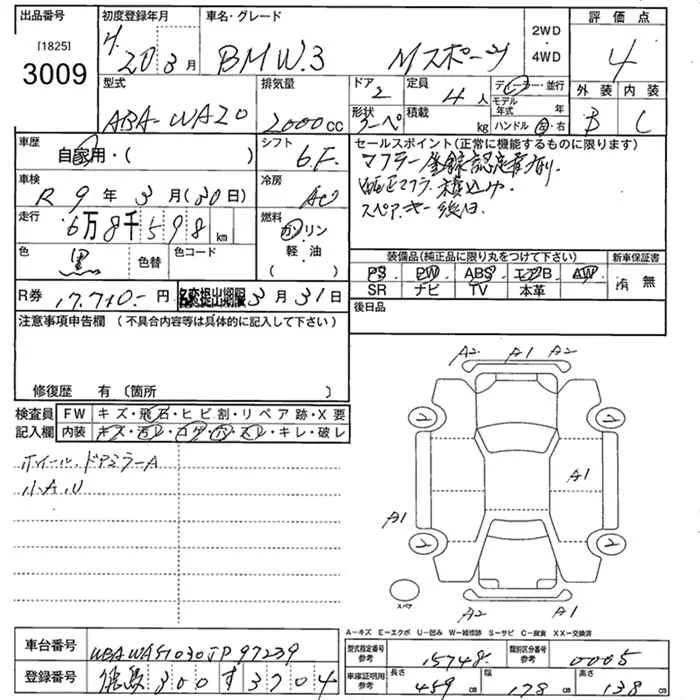 出品番号
[1825]
3009
初度登録年月
H
20 3 月
車名・グレード
BMW.3 Mスポーツ
2WD
4WD
評価点
4
外装 内装
B C
型式
ABA-WA20
排気量
2000cc
ドア
2
定員
4人
ディーラー・並行
モデル年式 年
形状
クーペ
積載 kg
ハンドル 左・右
車歴
自家用・( )
シフト
6F
セールスポイント(正常に機能するものに限ります)
マフラー
スペアキー後日
車検
R9年3月(30日)
冷房
AC
走行
6万8千598km
燃料
ガソリン
軽・油
( )
色
黒
色替 色コード
装備品(純正品に限り丸をつけて下さい)
新車保証書
PS PW ABS エアB AW
SR ナビ TV 本革
有 無
R券
17,710-円
名変提出期限
3月31日
後日品
注意事項申告欄(不具合内容等は具体的に記入して下さい)
修復歴 有〔箇所 〕
検査員記入欄
FW キズ・飛石・ヒビ割・リペア跡・X要
内装 キズ・汚レ・コゲ・穴・スレ・キレ・破レ
ホイール、ドアミラーA
小A、U
A2 A1 A2
A1
A1
A2 A1
スペア
A-キズ E-エクボ U-凹み W-補修跡 S-サビ C-腐食 XX-交換済
車台番号
WBAWA51030JP97239
登録番号
徳島300す3704
型式指定番号参考
15748
類別区分番号参考
0005
車庫証明用参考
長さ
459cm
幅
178cm
高さ
138cm